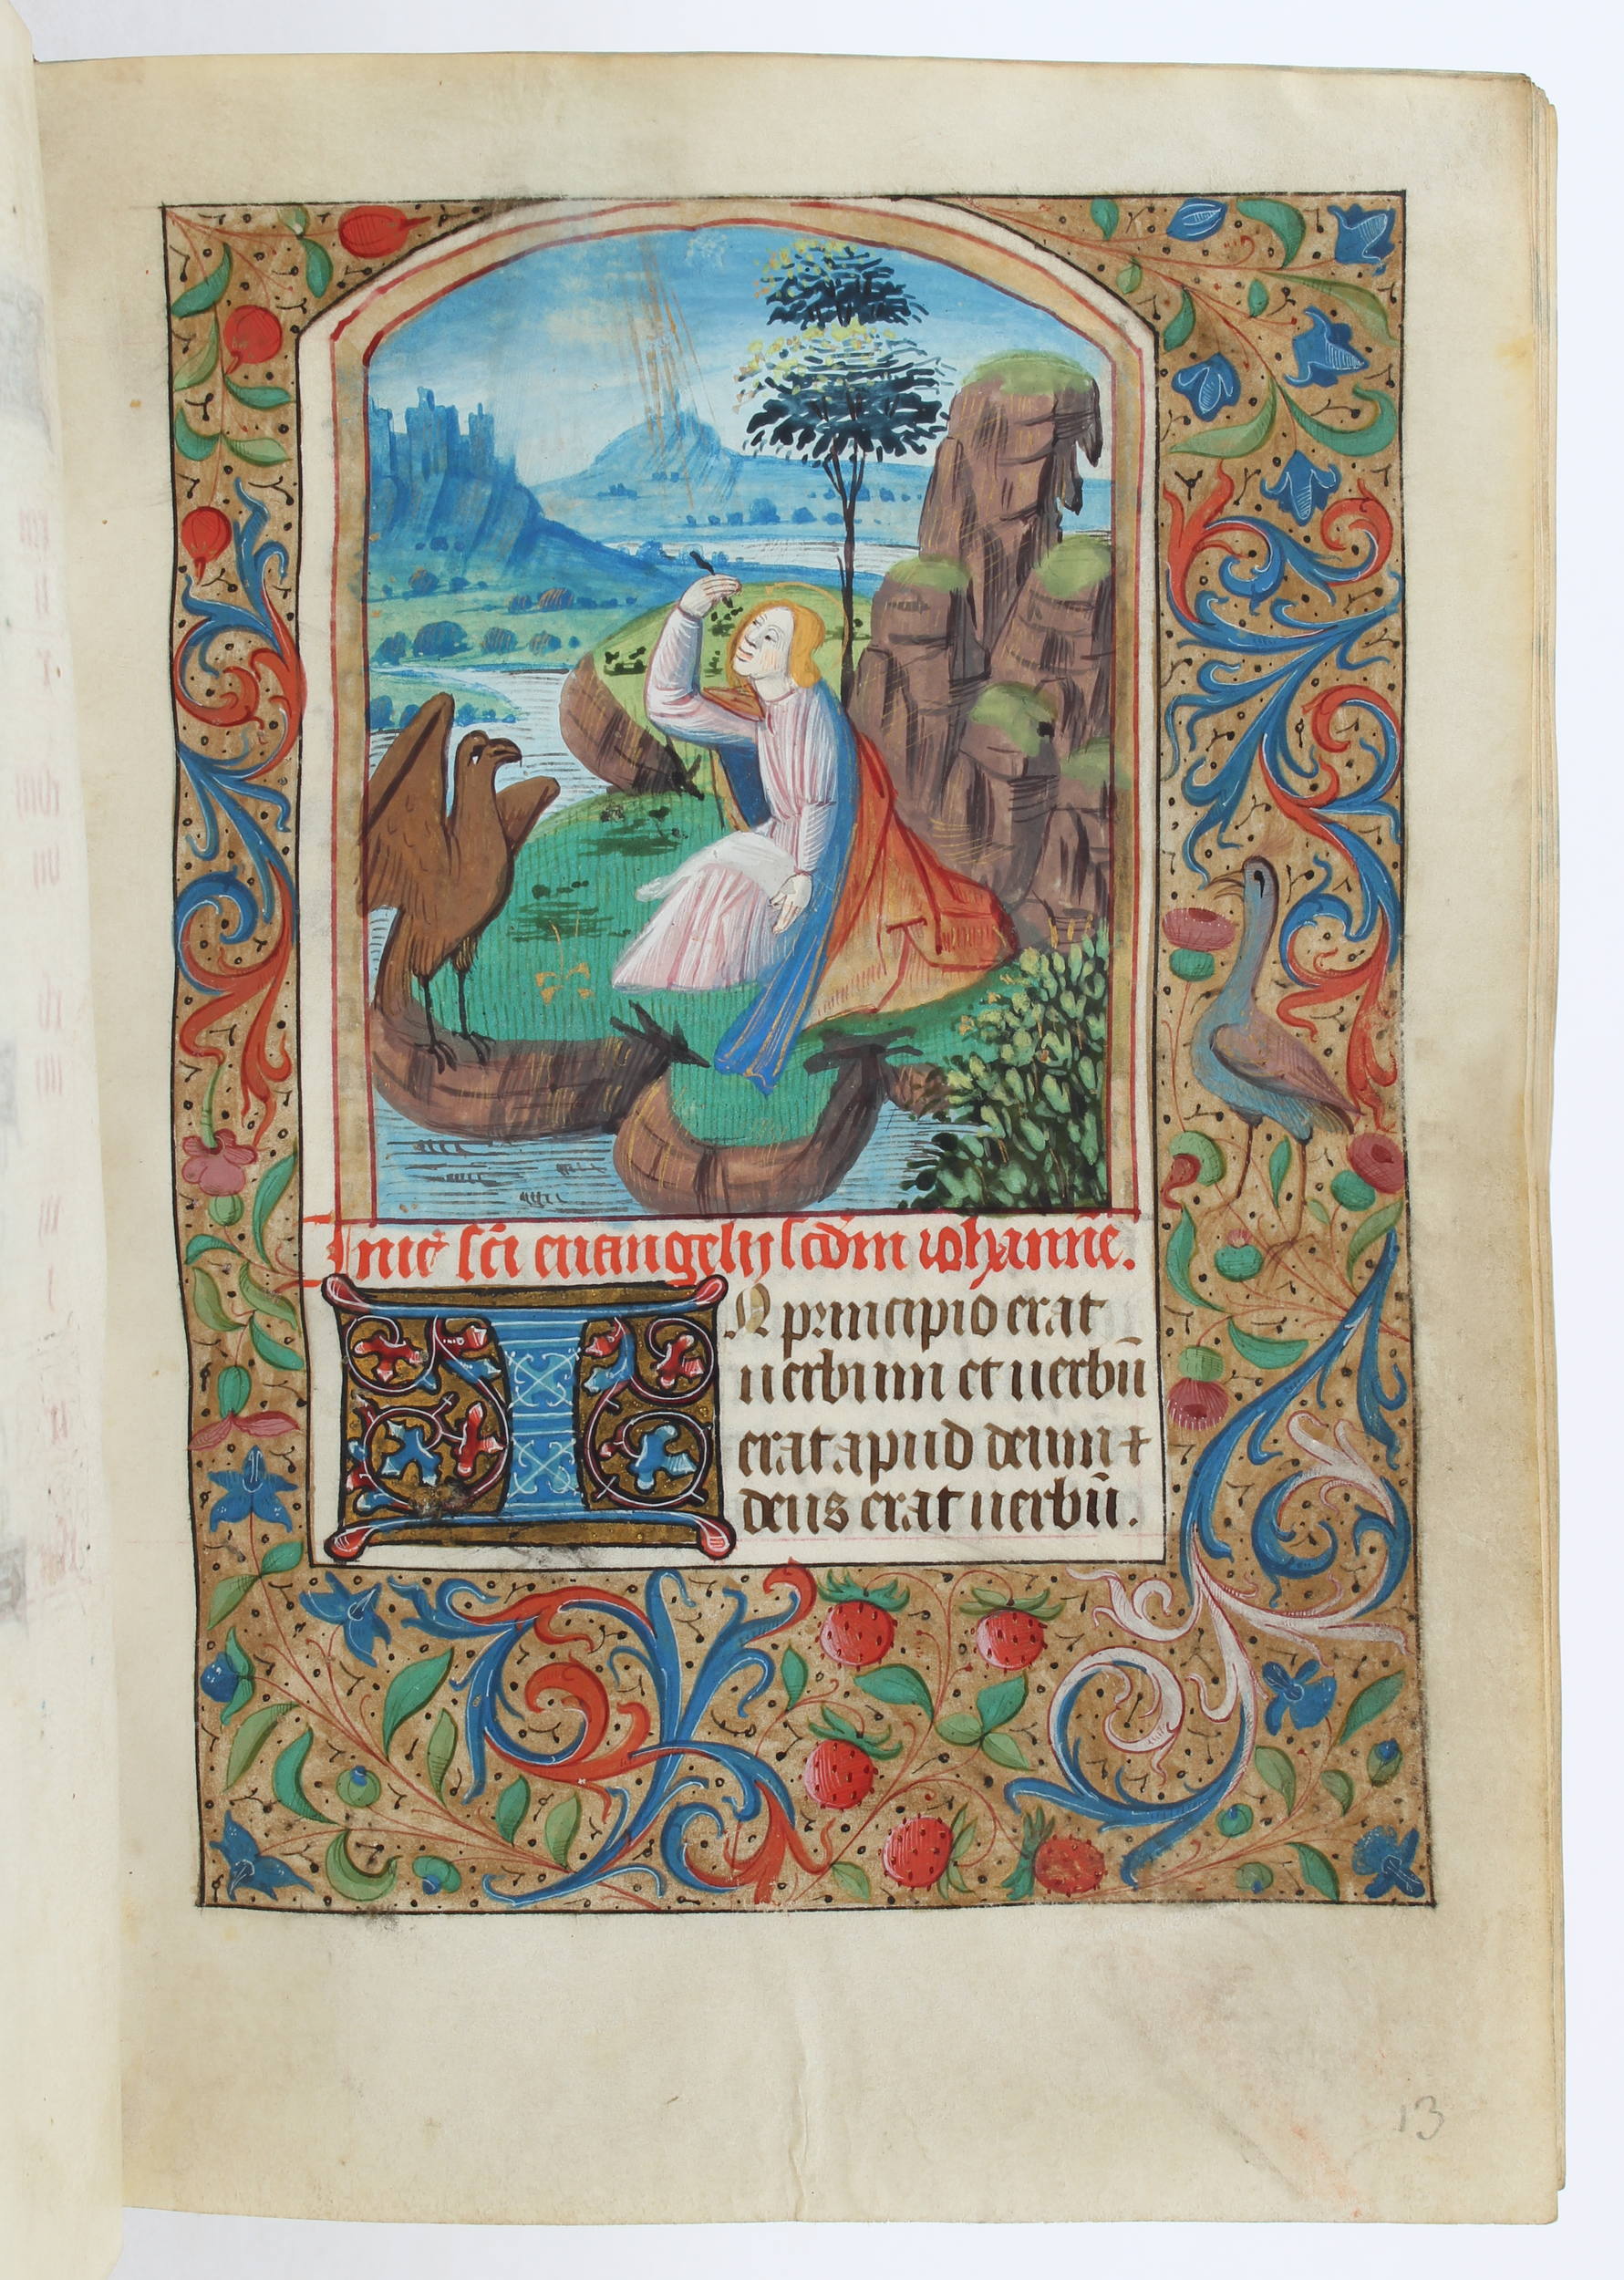 Inic̄ sc̄i euangelij scd̄m ioħanne̅.
IN principio erat
uerbum et uerbū
erat apud deum ⁊
deus erat uerbū.
13